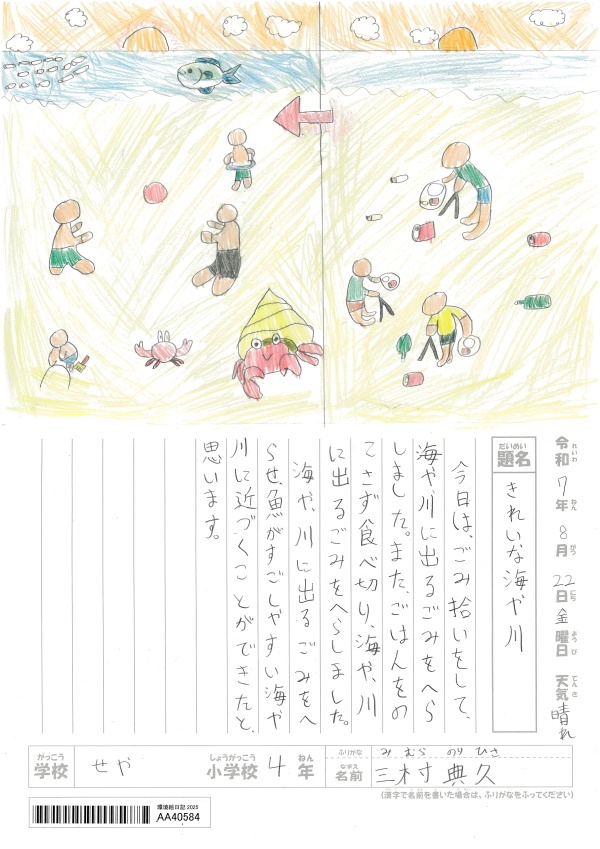 令和 れいわ 7年 ねん 8月 がつ 22日 にち 金曜日 ようび 天気 てんき 晴れ
題名 だいめい きれいな海や川
今日は、ごみ拾いをして、
海や、川に出るごみをへら
しました。また、ごはんをの
こさず食べ切り、海や、川
に出るごみをへらしました。
海や、川に出るごみをへ
らせ、魚がすごしやすい海や
川に近づくことができたと、
思います。
学校 がっこう せや 小学校 しょうがっこう 4年 ねん
ふりがな みむら のりひさ
名前 なまえ 三村 典久
(漢字で名前を書いた場合は、ふりがなをふってください)
環境絵日記 2025
AA40584